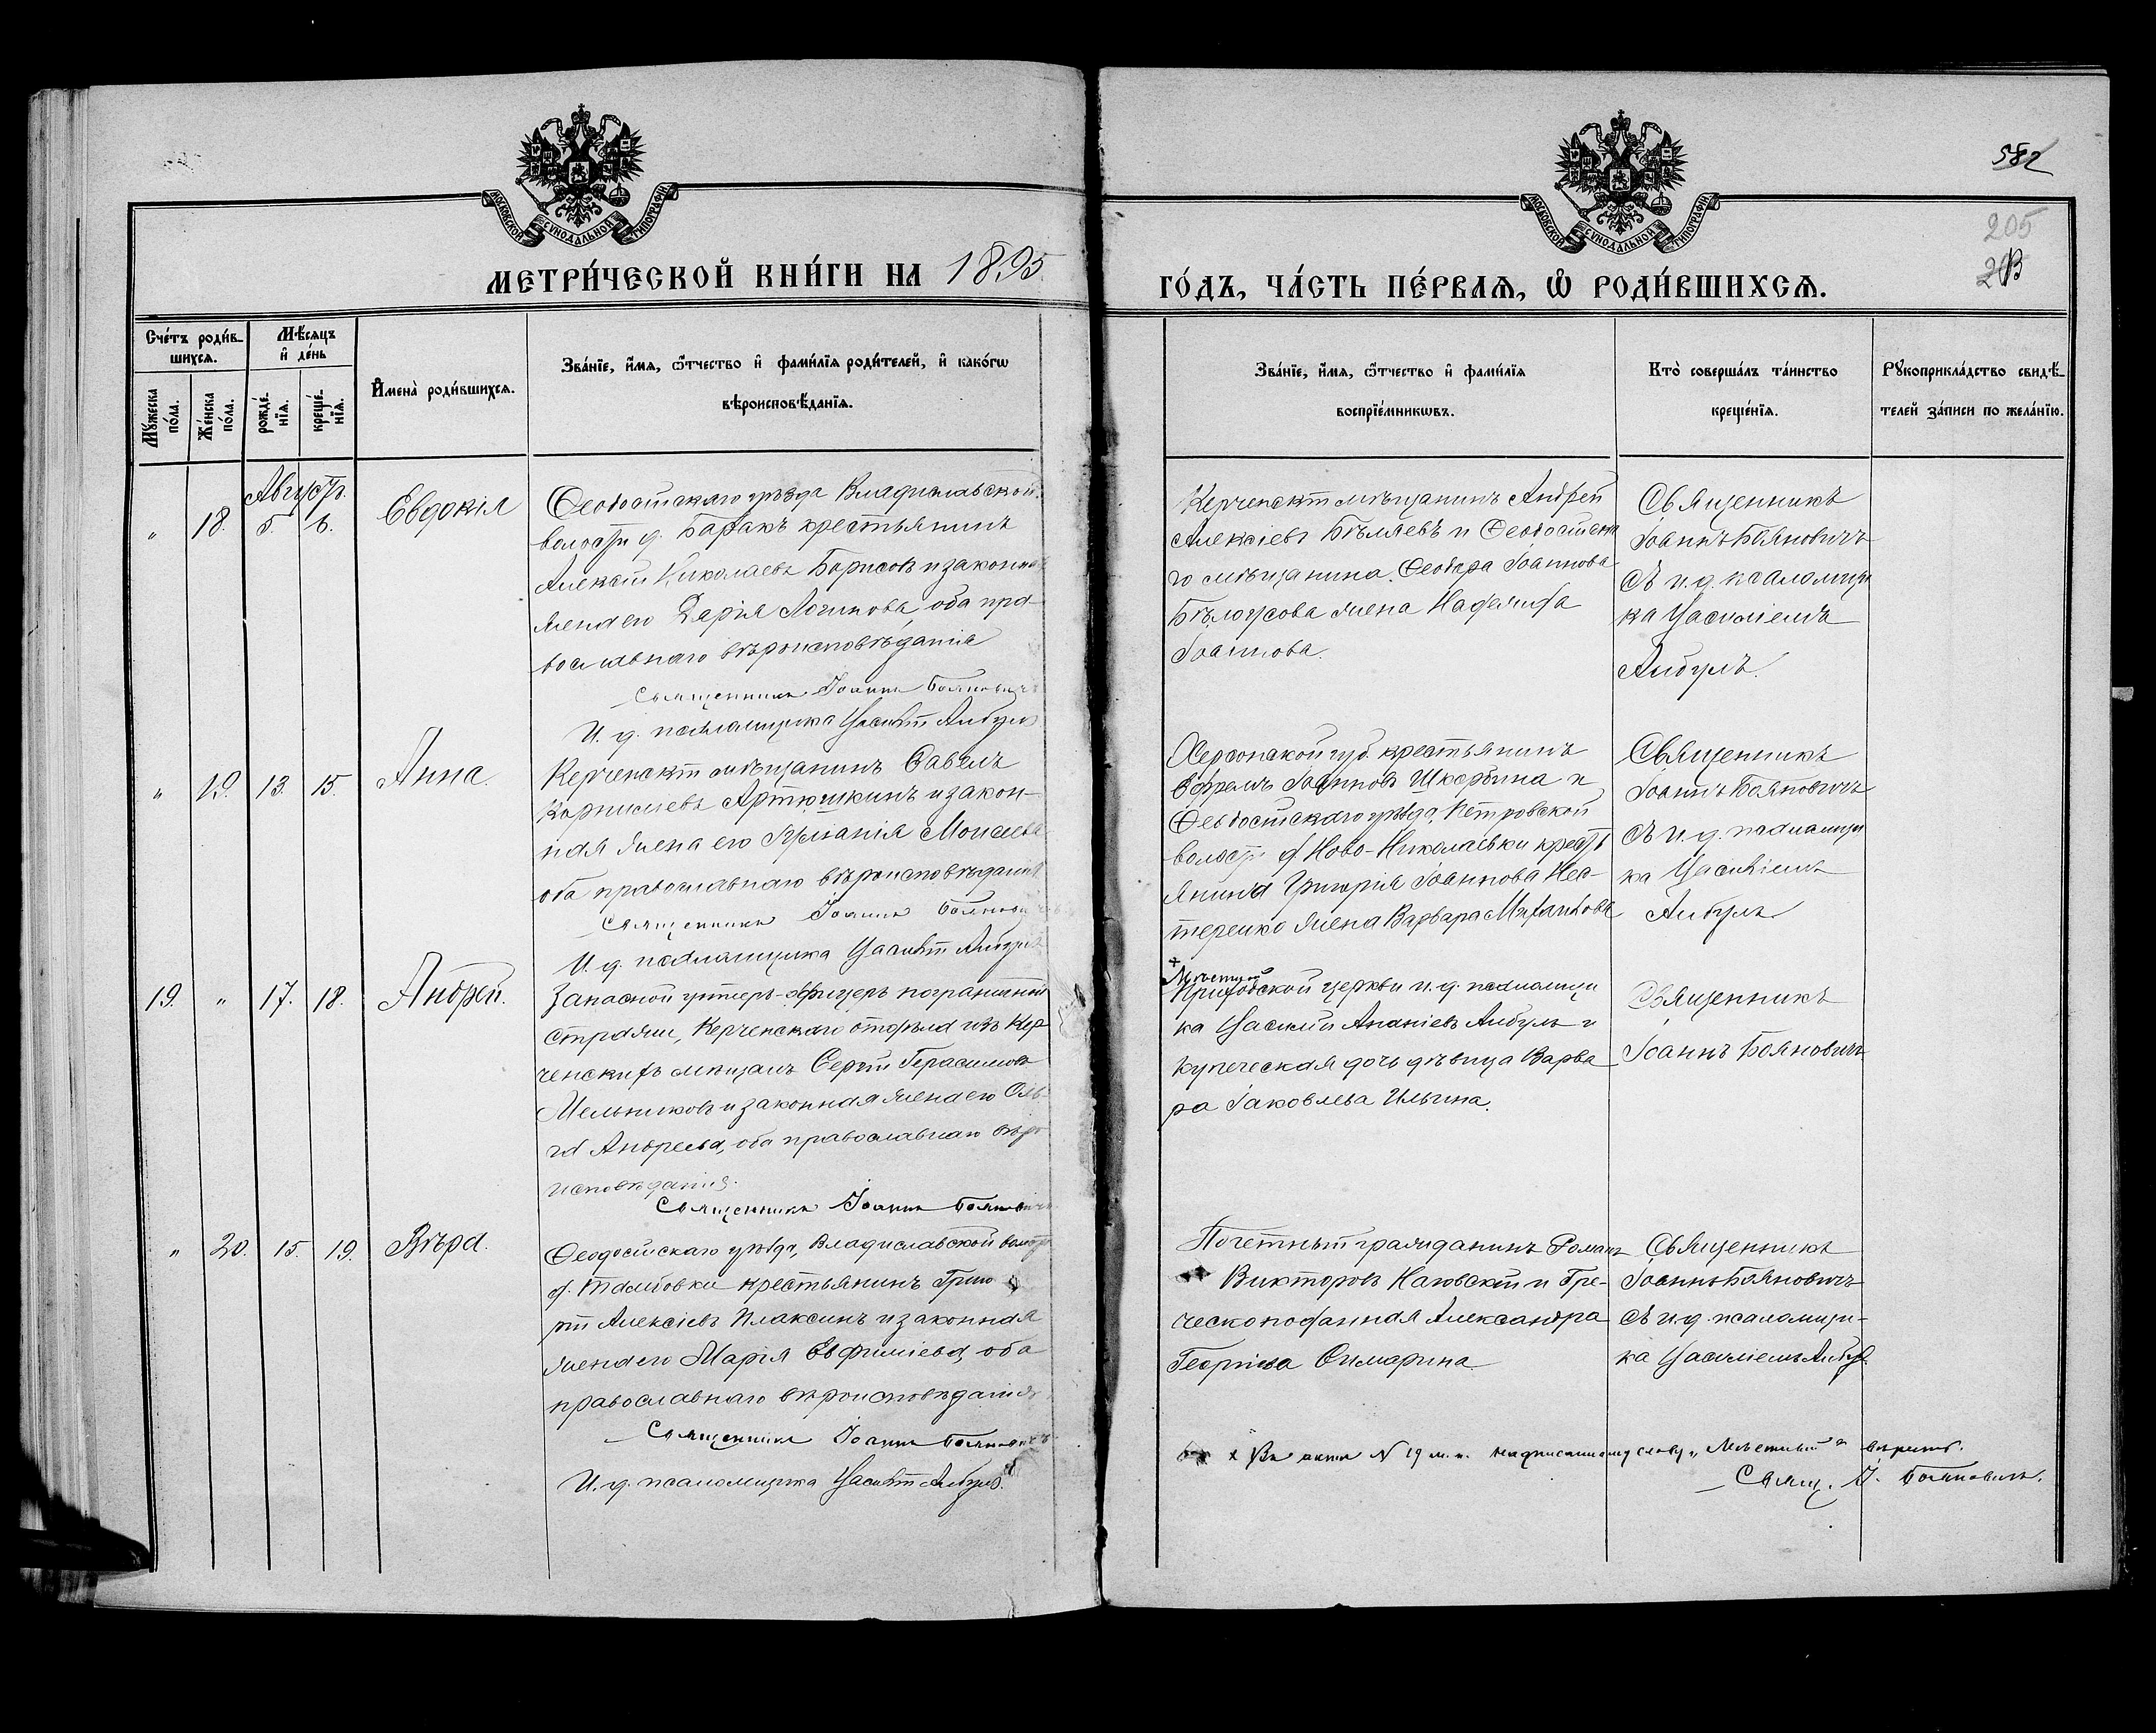 582
205
МОСКОВСКОЙ СѴНОДАЛЬНОЙ ТИПОГРАФІИ
МОСКОВСКОЙ СѴНОДАЛЬНОЙ ТИПОГРАФІИ
МЕТРИ́ЧЕСКОЙ КНИ́ГИ НА 1895
ГО́ДЪ, ЧА́СТЬ ПЕ́РВАѦ, Ѡ҆ РОДИ́ВШИХСѦ.
Сче́тъ роди́в-
шихсѧ.
Мꙋ́жеска по́ла.
Же́нска по́ла.
Мѣ́сѧцъ
и҆ де́нь
рожде́-
нїѧ.
креще́-
нїѧ.
И҆мена̀ роди́вшихсѧ.
Зва́нїе, и҆́мѧ, ѻ҆́тчество и҆ фами́лїѧ роди́телей, и҆ како́гѡ
вѣроисповѣ́данїѧ.
Зва́нїе, и҆́мѧ, ѻ҆́тчество и҆ фами́лїѧ
воспрїе́мникѡвъ.
Кто̀ соверша́лъ та́инство
креще́нїѧ.
Рꙋкоприкла́дство свидѣ́-
телей за́писи по жела́нїю.
Августъ.
„ 18. 5. 6. Евдокія
Ѳеодосійскаго уѣзда Владиславской
волости д. Баракъ крестьянинъ
Алексій Николаевъ Борисовъ и законная
жена его Дарія Логинова, оба пра-
вославнаго вѣроисповѣданія
Священникъ Іоаннъ Бояновичъ
И. д. псаломщика Василій Анбулъ
Керченскій мѣщанинъ Андрей
Алексіевъ Бѣляевъ и Ѳеодосійска
го мѣщанина Ѳеодора Іоаннова
Бѣлоусова жена Надежда
Іоаннова.
Священникъ
Іоаннъ Бояновичъ
съ и. д. псаломщи
ка Василіемъ
Анбулъ.
„ 19. 13. 15. Анна.
Керченскій мѣщанинъ Павелъ
Корниліевъ Артюшкинъ и закон-
ная жена его Іуліанія Моисеева
оба православнаго вѣроисповѣданія
Священникъ Іоаннъ Бояновичъ
И. д. псаломщика Василій Анбулъ
Херсонской губ. крестьянинъ
Ефремъ Іоанновъ и
Ѳеодосійскаго уѣзда, Петровской
волости д. Ново-Николаевки кресть
янина Григорія Іоаннова Нес-
теренко жена Варвара Михайлова
Священникъ
Іоаннъ Бояновичъ
съ и. д. псаломщи
ка Василіемъ
Анбулъ.
19. „ 17. 18. Андрей.
Запасной унтеръ-офицеръ пограничной
стражи, Керченскаго отдѣла изъ Кер
ченскихъ мѣщанъ Сергій Герасимовъ
Мельниковъ и законная жена его Оль-
га Андреева, оба православнаго вѣро
исповѣданія.
Священникъ Іоаннъ Бояновичъ
+
Мѣстной
Приходской церкви и. д. псаломщи
ка Василій Ананіевъ Анбулъ и
купеческая дочь дѣвица Варва
ра Іаковлева Ильина.
Священникъ
Іоаннъ Бояновичъ
„ 20. 15. 19. Вѣра.
Ѳеодосійскаго уѣзда, Владиславской волости
д. крестьянинъ Григо
рій Алексіевъ Плаксинъ и законная
жена его Марія Евфиміева, оба
православнаго вѣроисповѣданія
Священникъ Іоаннъ Бояновичъ
И. д. псаломщика Василій Анбулъ.
Почетный гражданинъ Романъ
Викторовъ и Гре-
ческоподанная Александра
Георгіева
Священникъ
Іоаннъ Бояновичъ
съ и. д. псаломщи-
ка Василіемъ Анбулъ
х Въ актѣ N 19 м. п. надписанному слову „Мѣстный“ вѣрить.
Свящ. І. Бояновичъ.